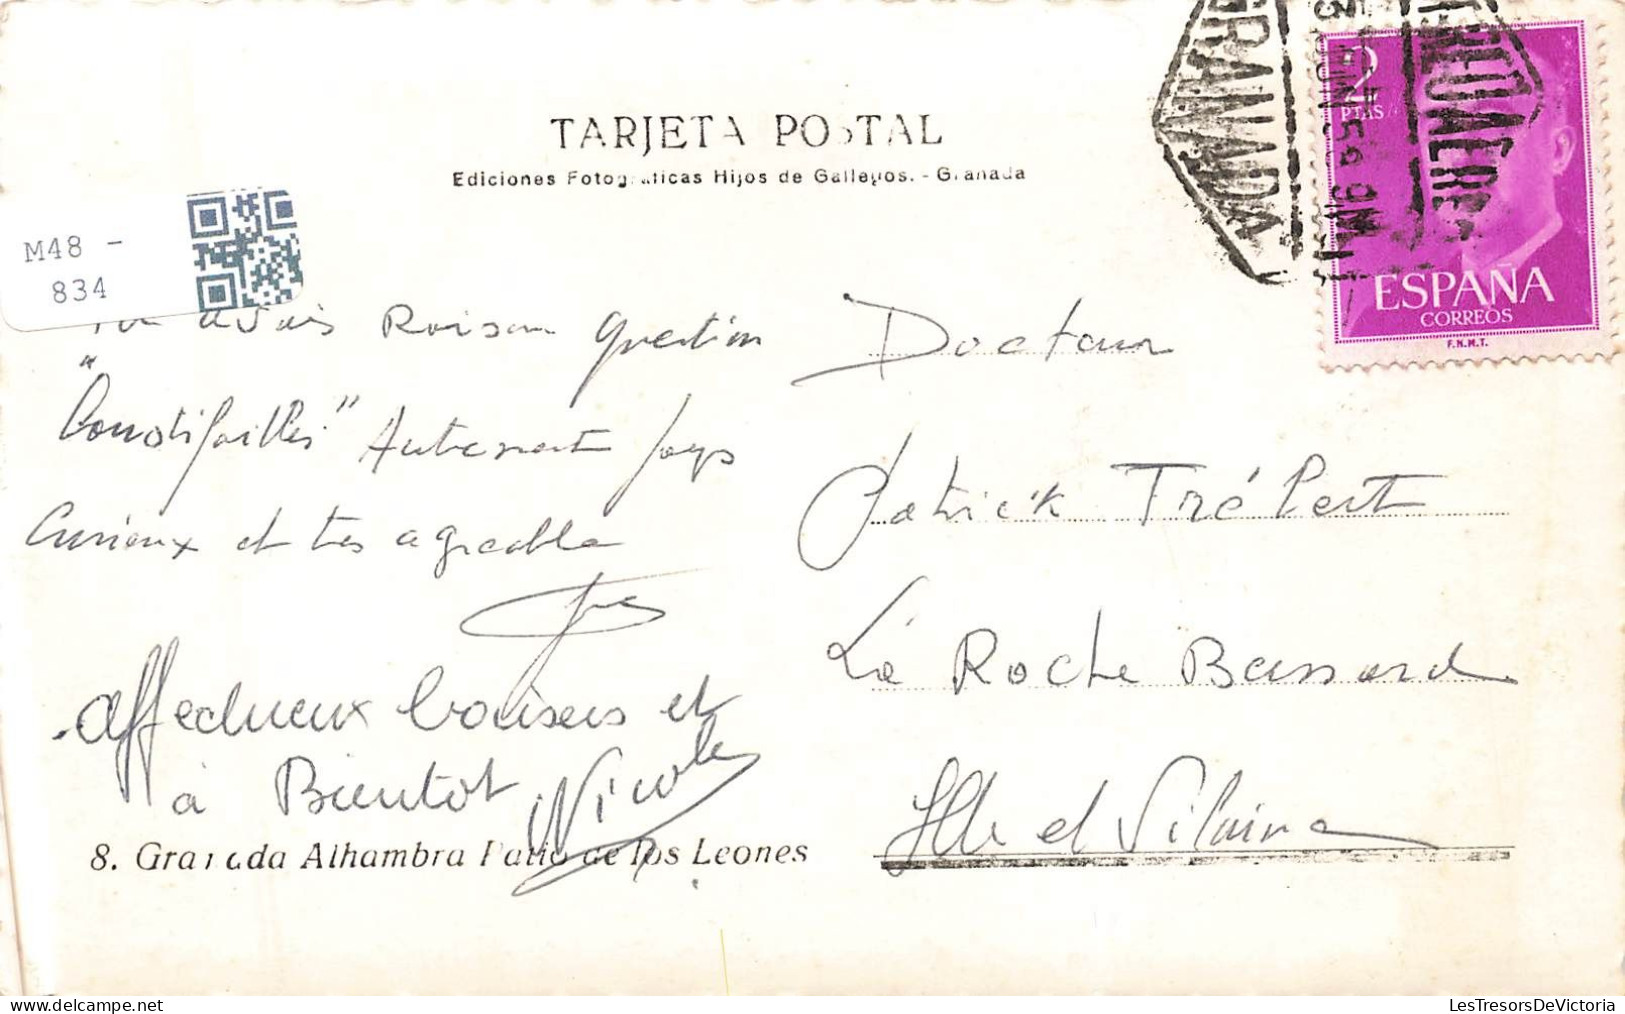 TARJETA POSTAL
Ediciones Fotográficas Hijos de Gallegos. - Granada
M48 -
834
GRANADA
CORREO AEREO
2
PTAS
ESPAÑA
CORREOS
F.N.M.T.
Tu avais Raison question
Autrement pays
Curieux et très agreable
affectueux baisers et
à Bientot Nicole
8. Granada Alhambra Patio de los Leones
Docteur
Patrick Trépert
La Roche Bassard
Ille et Vilaine
LesTresorsDeVictoria